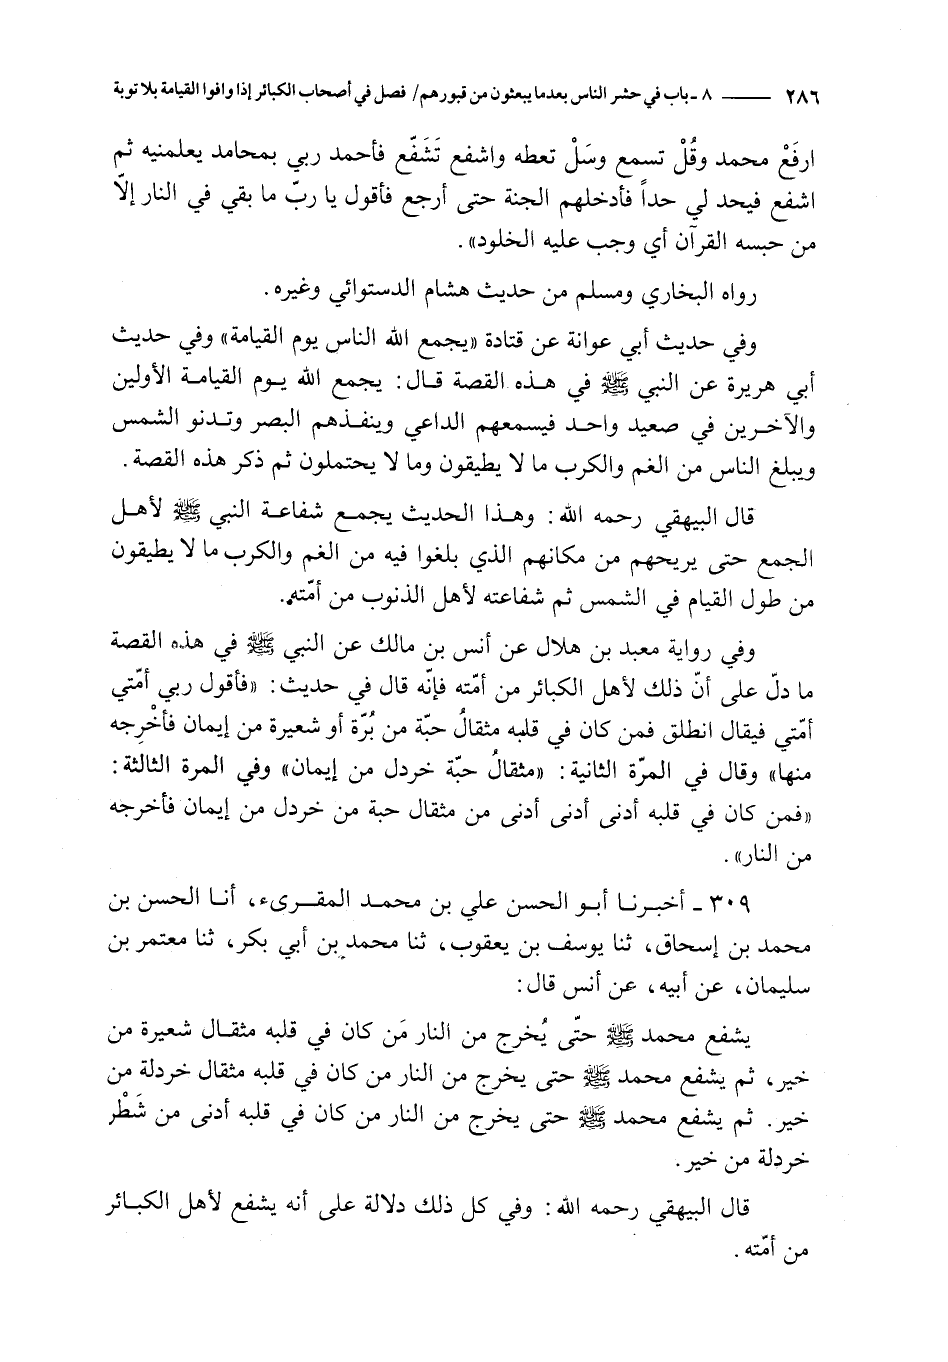 ٢٨٦ ــــــ ٨ ـ باب في حشر الناس بعدما يبعثون من قبورهم/ فصل في أصحاب الكبائر إذا وافوا القيامة بلا توبة
ارفَعْ محمد وقُلْ تسمع وسَلْ تعطه واشفع تَشَفّع فأحمد ربي بمحامد يعلمنيه ثم
اشفع فيحد لي حداً فأدخلهم الجنة حتى أرجع فأقول يا ربّ ما بقي في النار إلّا
من حبسه القرآن أي وجب عليه الخلود».
رواه البخاري ومسلم من حديث هشام الدستوائي وغيره.
وفي حديث أبي عوانة عن قتادة «يجمع الله الناس يوم القيامة» وفي حديث
أبي هريرة عن النبي ﷺ في هذه القصة قال: يجمع الله يوم القيامة الأولين
والآخرين في صعيد واحد فيسمعهم الداعي وينفذهم البصر وتدنو الشمس
ويبلغ الناس من الغم والكرب ما لا يطيقون وما لا يحتملون ثم ذكر هذه القصة.
قال البيهقي رحمه الله: وهذا الحديث يجمع شفاعة النبي ﷺ لأهل
الجمع حتى يريحهم من مكانهم الذي بلغوا فيه من الغم والكرب ما لا يطيقون
من طول القيام في الشمس ثم شفاعته لأهل الذنوب من أمّته.
وفي رواية معبد بن هلال عن أنس بن مالك عن النبي ﷺ في هذه القصة
ما دلّ على أنّ ذلك لأهل الكبائر من أمّته فإنّه قال في حديث: «فأقول ربي أمّتي
أمّتي فيقال انطلق فمن كان في قلبه مثقالُ حبّة من بُرّة أو شعيرة من إيمان فأخْرِجه
منها» وقال في المرّة الثانية: «مثقالُ حبّة خردل من إيمان» وفي المرة الثالثة:
«فمن كان في قلبه أدنى أدنى أدنى من مثقال حبة من خردل من إيمان فأخرجه
من النار».
٣٠٩ ـ أخبرنا أبو الحسن علي بن محمد المقرىء، أنا الحسن بن
محمد بن إسحاق، ثنا يوسف بن يعقوب، ثنا محمد بن أبي بكر، ثنا معتمر بن
سليمان، عن أبيه، عن أنس قال:
يشفع محمد ﷺ حتّى يُخرج من النار مَن كان في قلبه مثقال شعيرة من
خير، ثم يشفع محمد ﷺ حتى يخرج من النار من كان في قلبه مثقال خردلة من
خير. ثم يشفع محمد ﷺ حتى يخرج من النار من كان في قلبه أدنى من شَطْر
خردلة من خير.
قال البيهقي رحمه الله: وفي كل ذلك دلالة على أنه يشفع لأهل الكبائر
من أمّته.